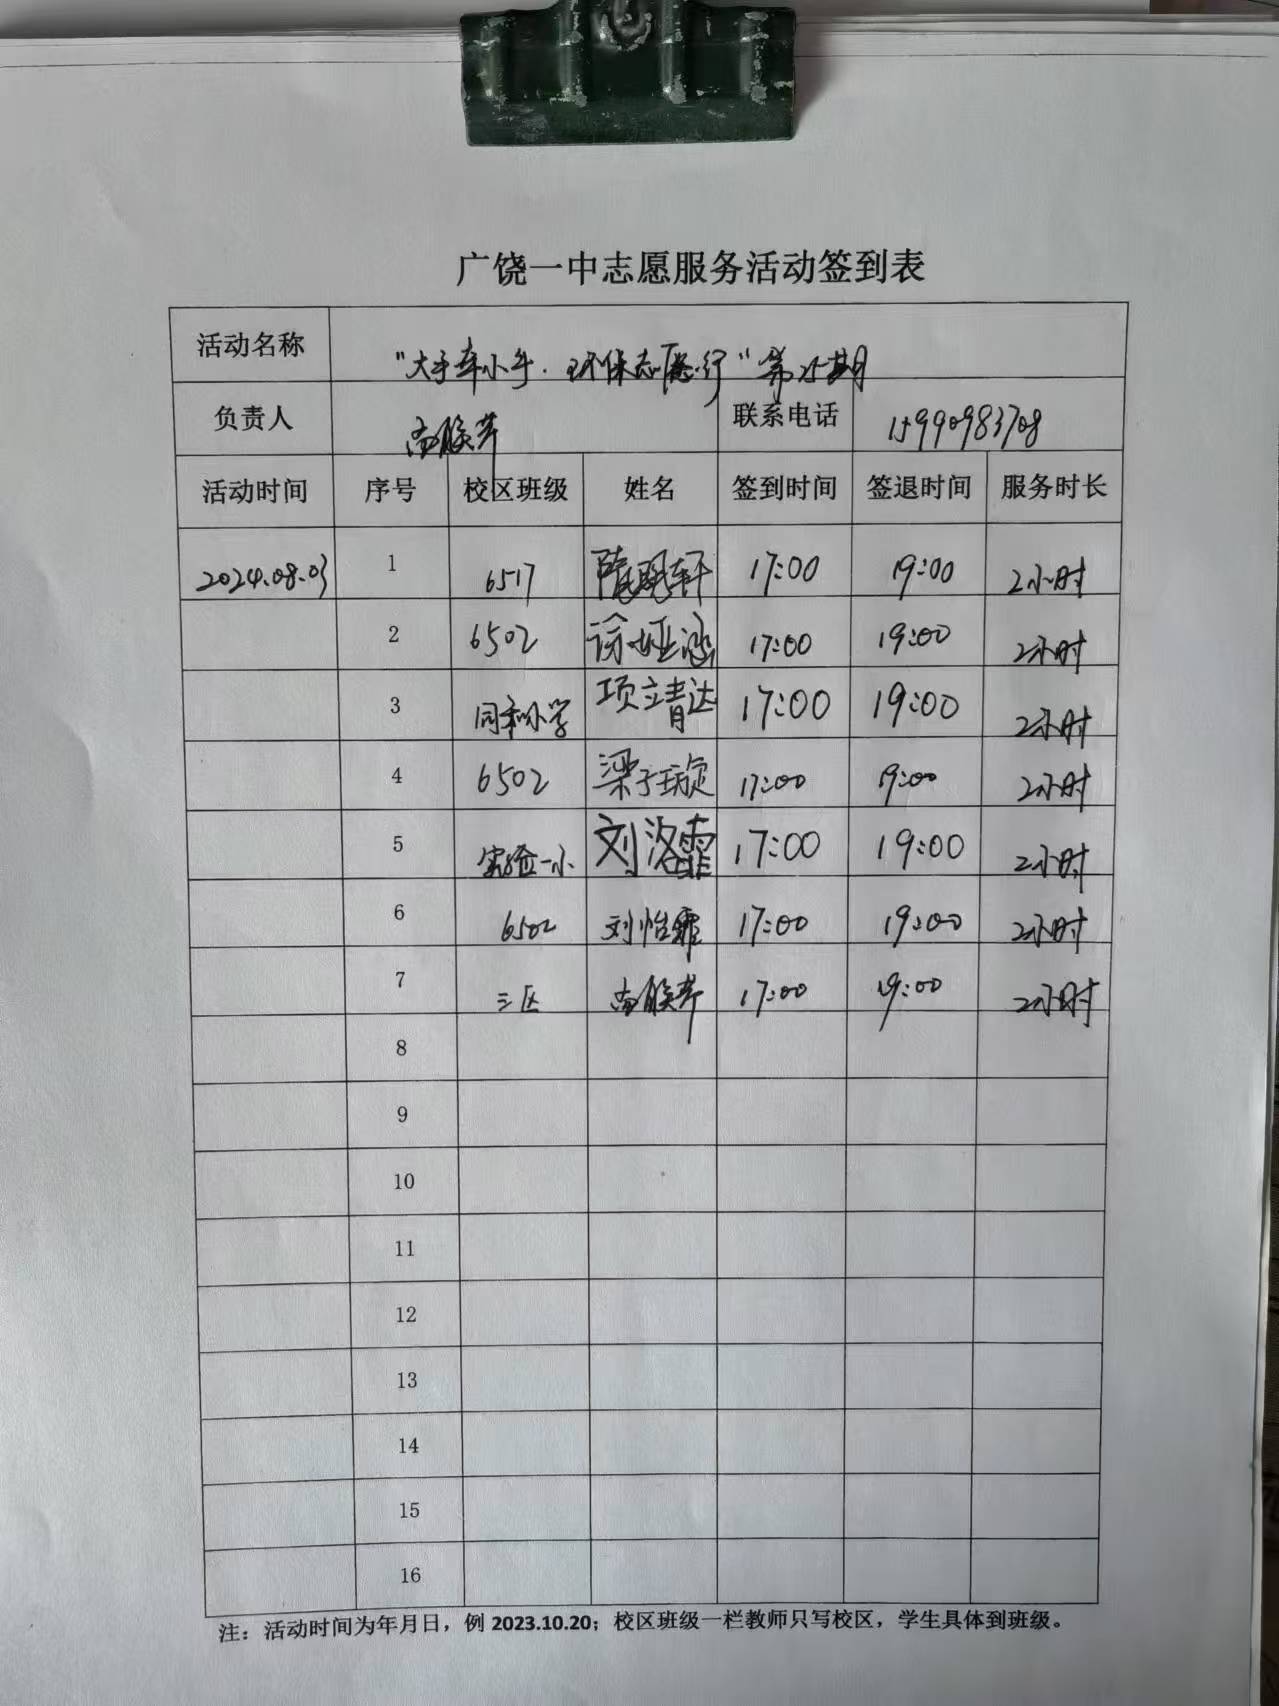 广饶一中志愿服务活动签到表
活动名称 "大手牵小手·环保志愿行"第25期
负责人 联系电话 15990983708
活动时间 序号 校区班级 姓名 签到时间 签退时间 服务时长
2024.08.03 1 6517 17:00 19:00 2小时
2 6502 徐娅涵 17:00 19:00 2小时
3 同和小学 项立青达 17:00 19:00 2小时
4 6502 梁子琁 17:00 19:00 2小时
5 实验一小 刘洛霏 17:00 19:00 2小时
6 6502 刘怡霏 17:00 19:00 2小时
7 三区 17:00 19:00 2小时
8
9
10
11
12
13
14
15
16
注：活动时间为年月日，例 2023.10.20；校区班级一栏教师只写校区，学生具体到班级。